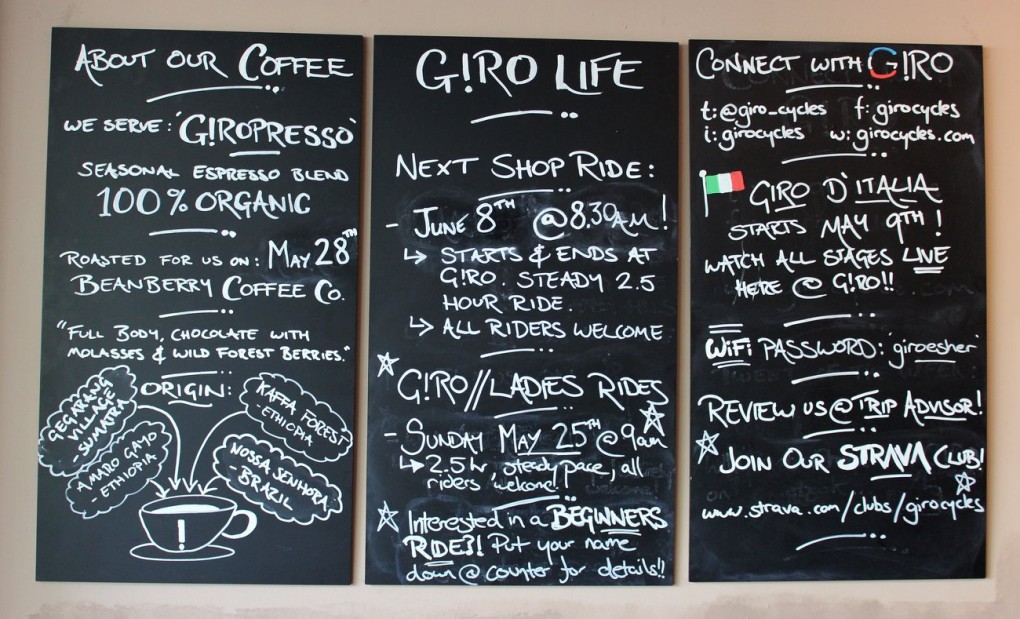 ABOUT OUR COFFEE
WE SERVE: 'G!ROPRESSO'
SEASONAL ESPRESSO BLEND
100% ORGANIC
ROASTED FOR US ON: MAY 28TH
BEANBERRY COFFEE CO.
"FULL BODY, CHOCOLATE WITH
MOLASSES & WILD FOREST BERRIES."
ORIGIN:
GEGARANG
VILLAGE
SUMATRA
AMARO GAYO
-ETHIOPIA
KAFFA FOREST
-ETHIOPIA
NOSSA SENHORA
-BRAZIL
!
G!RO LIFE
NEXT SHOP RIDE:
- JUNE 8TH @8.30A.M!
↳ STARTS & ENDS AT
G!RO. STEADY 2.5
HOUR RIDE.
↳ ALL RIDERS WELCOME
G!RO//LADIES RIDES
- SUNDAY MAY 25TH @9am
↳ 2.5hr, steady pace, all
riders welcome!
Interested in a BEGINNERS
RIDE?! Put your name
down @ counter for details!!
CONNECT WITH G!RO
t: @giro_cycles f: girocycles
i: girocycles w: girocycles.com
GIRO D'ITALIA
STARTS MAY 9TH!
WATCH ALL STAGES LIVE
HERE @ G!RO!!
WiFi PASSWORD: 'giroesher'
REVIEW US @ TRIP ADVISOR!
JOIN OUR STRAVA CLUB!
www.strava.com/clubs/girocycles